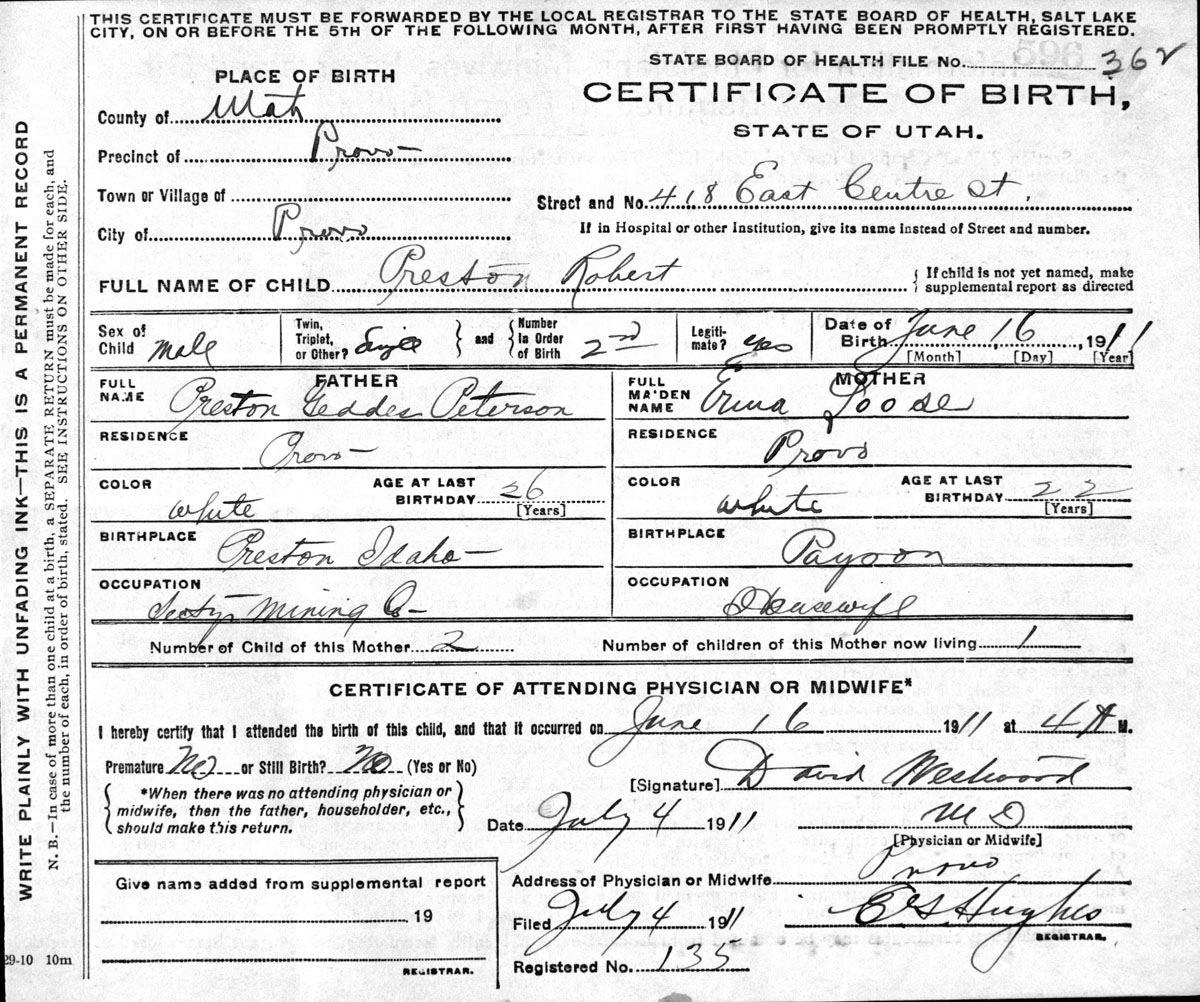 THIS CERTIFICATE MUST BE FORWARDED BY THE LOCAL REGISTRAR TO THE STATE BOARD OF HEALTH, SALT LAKE
CITY, ON OR BEFORE THE 5TH OF THE FOLLOWING MONTH, AFTER FIRST HAVING BEEN PROMPTLY REGISTERED.
STATE BOARD OF HEALTH FILE No. 362
CERTIFICATE OF BIRTH,
STATE OF UTAH.
PLACE OF BIRTH
County of Utah
Precinct of Provo
Town or Village of
City of Provo
Street and No. 418 East Centre St.
If in Hospital or other Institution, give its name instead of Street and number.
FULL NAME OF CHILD Preston Robert
If child is not yet named, make
supplemental report as directed
Sex of
Child Male
Twin,
Triplet,
or Other? Single
and
Number
In Order
of Birth 2nd
Legiti-
mate? yes
Date of
Birth June 16, 1911
[Month] [Day] [Year]
FATHER
FULL
NAME Preston Geddes Peterson
RESIDENCE
Provo
COLOR
white
AGE AT LAST
BIRTHDAY 26
[Years]
BIRTHPLACE
Preston Idaho
OCCUPATION
Secty Mining Co
MOTHER
FULL
MAIDEN
NAME Erma Loose
RESIDENCE
Provo
COLOR
white
AGE AT LAST
BIRTHDAY 22
[Years]
BIRTHPLACE
Payson
OCCUPATION
Housewife
Number of Child of this Mother 2
Number of children of this Mother now living 1
CERTIFICATE OF ATTENDING PHYSICIAN OR MIDWIFE*
I hereby certify that I attended the birth of this child, and that it occurred on June 16 1911 at 4 A M.
Premature No or Still Birth? No (Yes or No)
*When there was no attending physician or
midwife, then the father, householder, etc.,
should make this return.
[Signature] David Westwood
Date July 4 1911
M D
[Physician or Midwife]
Address of Physician or Midwife Provo
Filed July 4 1911
E S Hughes
REGISTRAR.
Registered No. 135
Give name added from supplemental report
19
REGISTRAR.
29-10 10m
WRITE PLAINLY WITH UNFADING INK—THIS IS A PERMANENT RECORD
N. B.—In case of more than one child at a birth, a SEPARATE RETURN must be made for each, and
the number of each, in order of birth, stated. SEE INSTRUCTIONS ON OTHER SIDE.